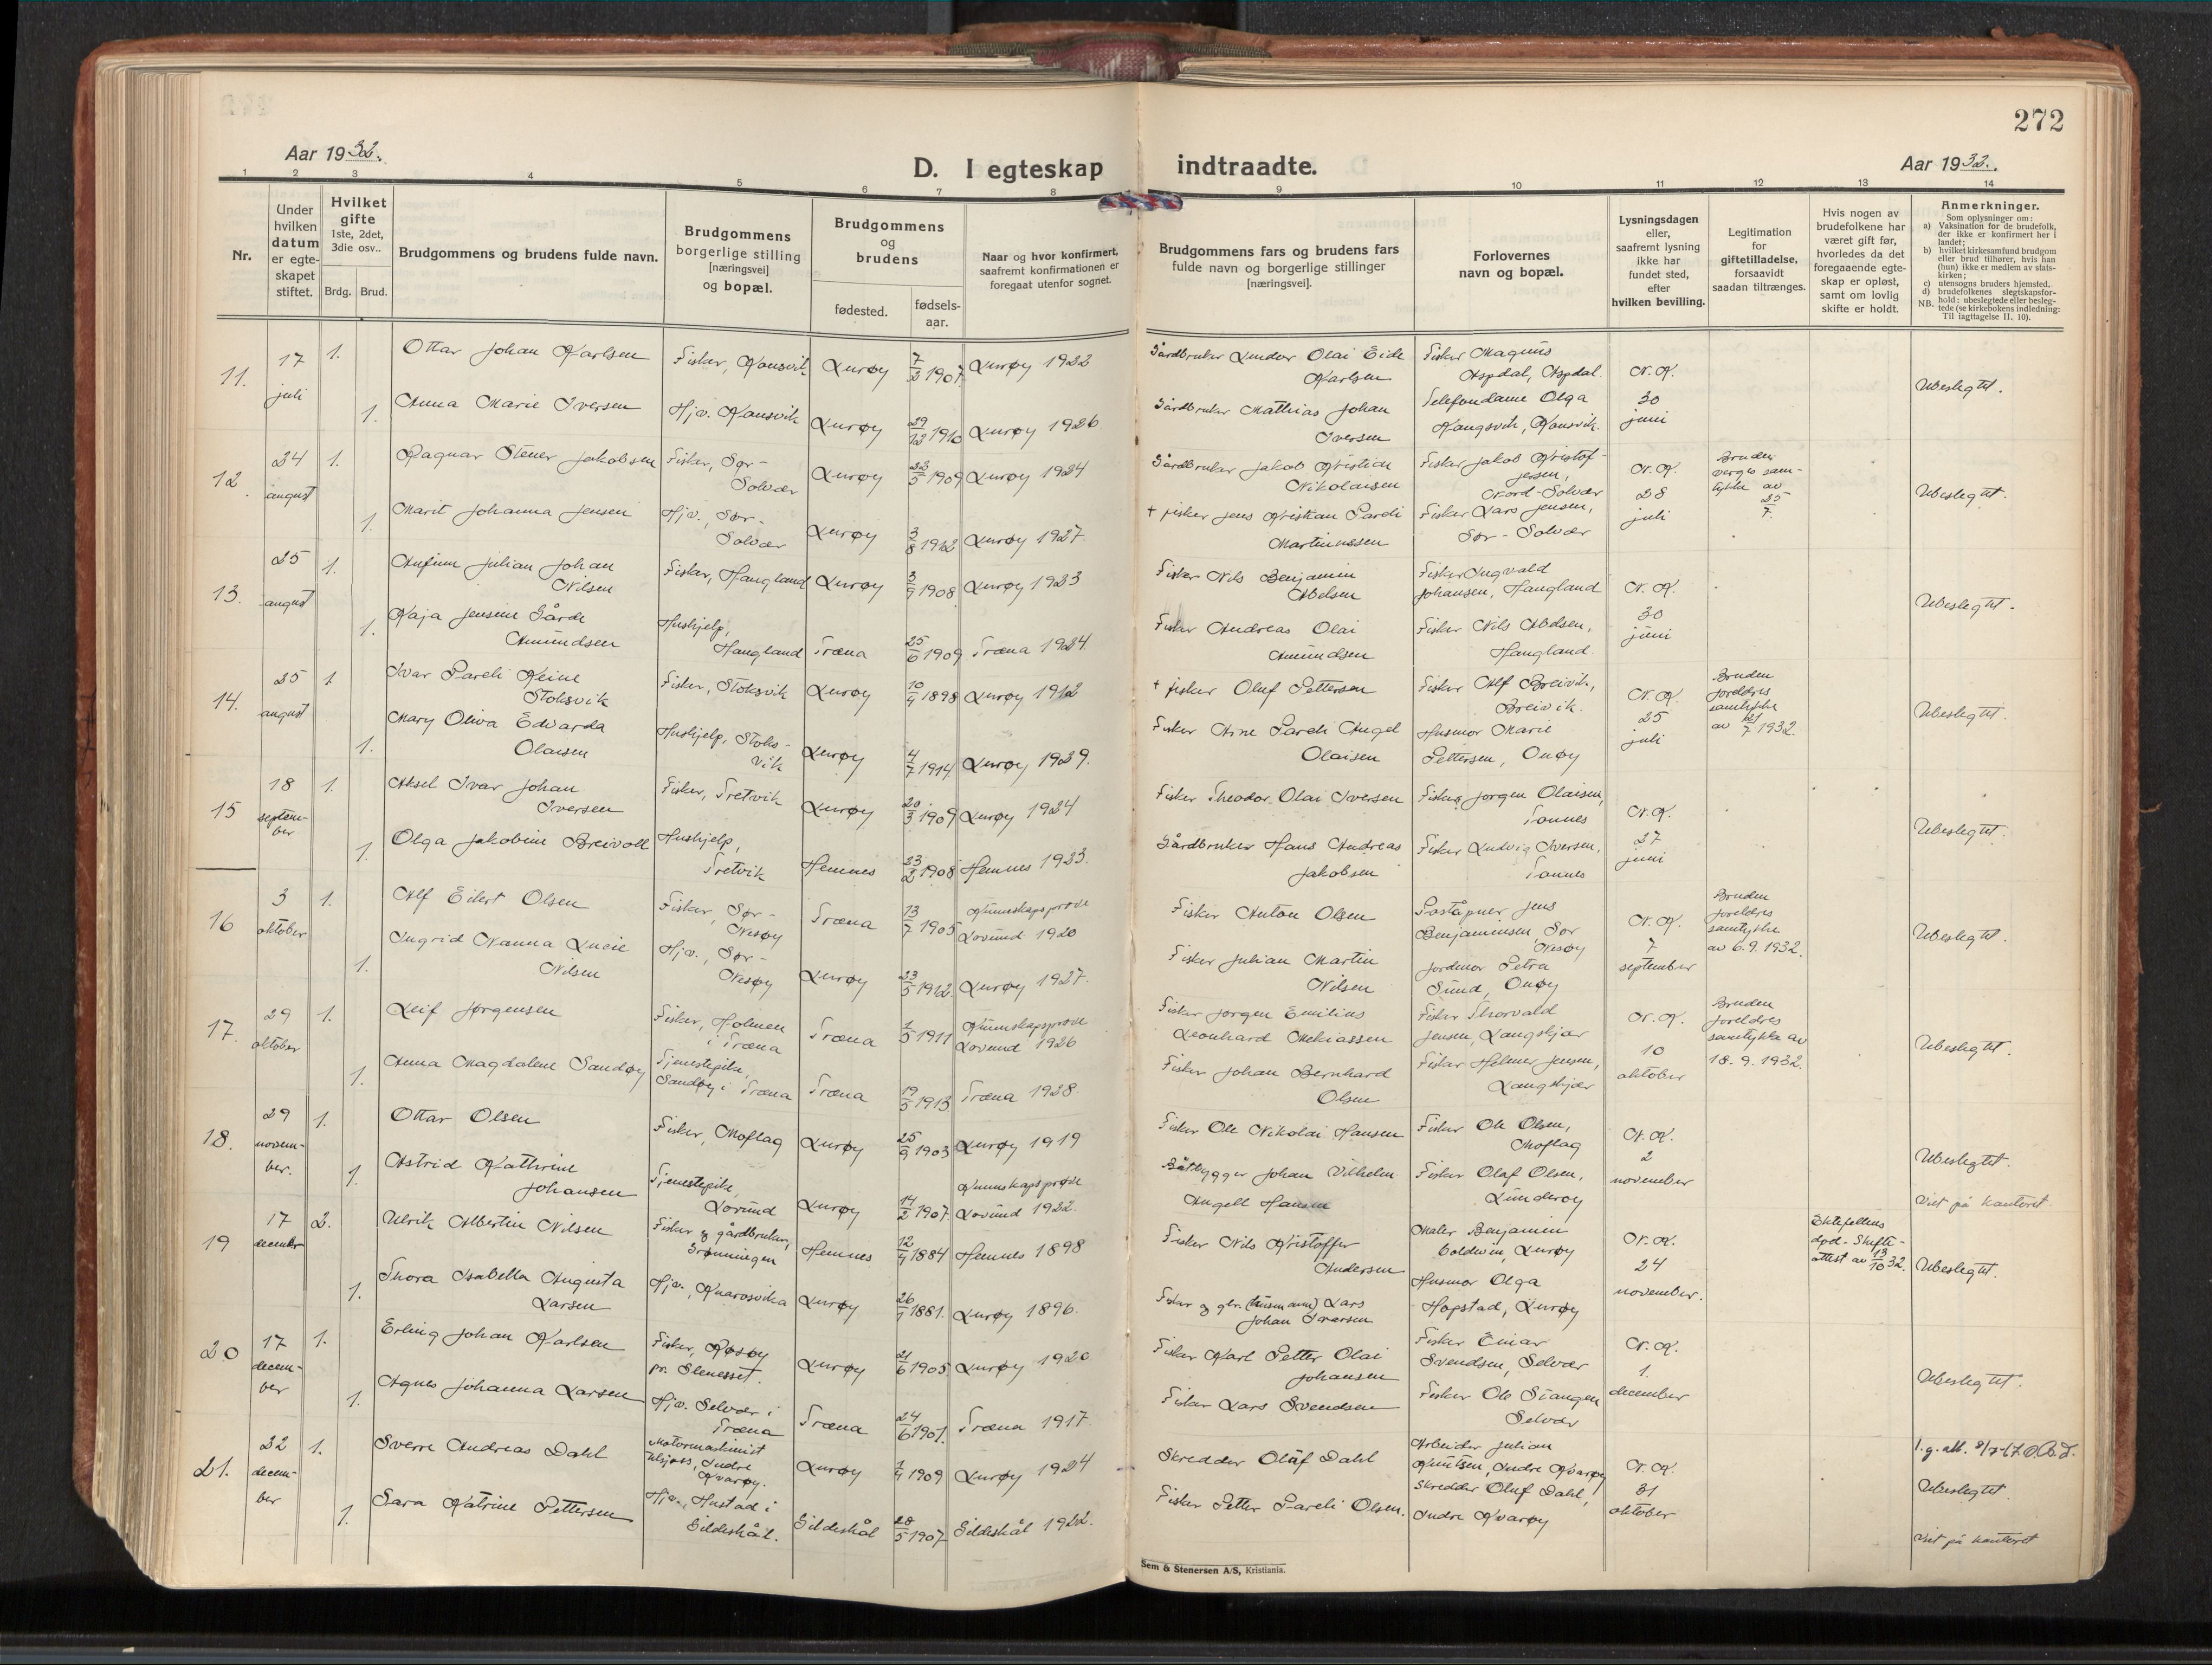 272
Aar 1932.
D. I egteskap indtraadte.
Aar 1932.
1 2 3 4 5 6 7 8 9 10 11 12 13 14
Nr.
Under hvilken datum er egteskapet stiftet.
Hvilket gifte 1ste, 2det, 3die osv..
Brdg. Brud.
Brudgommens og brudens fulde navn.
Brudgommens borgerlige stilling [næringsvei] og bopæl.
Brudgommens og brudens
fødested.
fødselsaar.
Naar og hvor konfirmert, saafremt konfirmationen er foregaat utenfor sognet.
Brudgommens fars og brudens fars fulde navn og borgerlige stillinger [næringsvei].
Forlovernes navn og bopæl.
Lysningsdagen eller, saafremt lysning ikke har fundet sted, efter hvilken bevilling.
Legitimation for giftetilladelse, forsaavidt saadan tiltrænges.
Hvis nogen av brudefolkene har været gift før, hvorledes da det foregaaende egteskap er opløst, samt om lovlig skifte er holdt.
Anmerkninger.
Som oplysninger om:
a) Vaksination for de brudefolk, der ikke er konfirmert her i landet;
b) hvilket kirkesamfund brudgom eller brud tilhører, hvis han (hun) ikke er medlem av statskirken;
c) utensogns bruders hjemsted.
d) brudefolkenes slegtskapsforhold: ubeslegtede eller beslegtede (se kirkebokens indledning: Til iagttagelse II, 10).
NB.
11. 17 juli 1. Ottar Johan Karlsen Fisker, Konsvik Lurøy 7/2 1907 Lurøy 1922 Gårdbruker Lindor Olai Eide Karlsen Fisker Magnus Aspdal, Aspdal. N. K. 30 juni Ubeslegtet.
1. Anna Marie Iversen Hjv. Konsvik Lurøy 29/12 1910 Lurøy 1926 Gårdbruker Mathias Johan Iversen Telefondame Olga Kongsvik, Konsvik.
12. 24 august 1. Ragnar Stener Jakobsen Fisker, Sør-Solvær Lurøy 22/5 1909 Lurøy 1924 Gårdbruker Jakob Kristian Nikolaisen Fisker Jakob Kristoffersen, Nord-Solvær N. K. 28 juli Bruden verges samtykke av 25/7. Ubeslegtet.
1. Marit Johanna Jensen Hjv., Sør-Solvær Lurøy 3/8 1912 Lurøy 1927. † fisker Jens Kristian Pareli Martinussen Fisker Lars Jensen, Sør-Solvær
13. 25 august 1. Anfinn Julian Johan Nilsen Fisker, Haugland Lurøy 3/9 1908 Lurøy 1923 Fisker Nils Benjamin Abelsen Fisker Ingvald Johansen, Haugland N. K. 30 juni Ubeslegtet.
1. Kaja Jensine Gårde Amundsen Hushjelp, Haugland Træna 25/6 1909 Træna 1924. Fisker Andreas Olai Amundsen Fisker Nils Abelsen, Haugland.
14. 25 august 1. Ivar Pareli Keine Stoksvik Fisker, Stoksvik Lurøy 10/9 1898 Lurøy 1912 † fisker Oluf Pettersen Fisker Alf Breivik, Breivik. N. K. 25 juli Bruden foreldres samtykke av 21/7 1932. Ubeslegtet.
1. Mary Oliva Edvarda Olaisen Hushjelp, Stoksvik Lurøy 4/7 1914 Lurøy 1929. Fisker Arne Pareli Angel Olaisen Husmor Marie Pettersen, Onøy
15 18 september 1. Aksel Ivar Johan Iversen Fisker, Tretvik Lurøy 20/3 1909 Lurøy 1924 Fisker Theodor Olai Iversen Fisker Jørgen Olaisen, Tonnes N. K. 27 juni Ubeslegtet.
1. Olga Jakobine Breivoll Hushjelp, Tretvik Hemnes 23/2 1908 Hemnes 1923. Gårdbruker Hans Andreas Jakobsen Fisker Ludvig Iversen, Tonnes
16 3 oktober 1. Alf Eilert Olsen Fisker, Sør-Nesøy Træna 13/7 1905 Kunnskapsprøve Lovund 1920 Fisker Anton Olsen Poståpner Jens Benjaminsen Sør Nesøy N. K. 7 september Bruden foreldres samtykke av 6.9.1932. Ubeslegtet.
1. Ingrid Nanna Lucie Nilsen Hjv., Sør-Nesøy Lurøy 23/5 1912. Lurøy 1927. Fisker Julian Martin Nilsen Jordmor Petra Sund, Onøy
17. 29 oktober 1. Leif Jørgensen Fisker, Holmen i Træna Træna 1/5 1911 Kunnskapsprøve Lovund 1926 Fisker Jørgen Emilius Leonhard Mekiassen Fisker Thorvald Jensen, Langskjær N. K. 10 oktober Bruden foreldres samtykke av 18.9.1932. Ubeslegtet.
1. Anna Magdalene Sandøy Tjenestepike, Sandøy i Træna Træna 19/5 1913 Træna 1928. Fisker Johan Bernhard Olsen Fisker Helmer Jensen, Langskjær
18. 29 november. 1. Ottar Olsen Fisker, Moflag Lurøy 25/9 1903 Lurøy 1919 Fisker Ole Nikolai Hansen Fisker Ole Olsen, Moflag N. K. 2 november Ubeslegtet.
1. Astrid Kathrine Johansen Tjenestepike, Lovund Lurøy 14/2 1907. Kunnskapsprøve Lovund 1922. Båtbygger Johan Vilhelm Angell Hansen Fisker Olaf Olsen, Lunderøy Viet på kontoret.
19 17 december 2. Ulrik Albertin Nilsen Fisker og gårdbruker, Grønningen Hemnes 12/9 1884 Hemnes 1898 Fisker Nils Kristoffer Andersen Maler Benjamin Coldevin, Lurøy N. K. 24 november. Ektefellens død - Skifteattest av 13/10 32. Ubeslegtet.
1. Thora Isabella Augusta Larsen Hjv., Kvarøsvika Lurøy 26/9 1881. Lurøy 1896. Fisker og gbr. (husmann) Lars Johan Ivarsen Husmor Olga Hopstad, Lurøy
20 17 december 1. Erling Johan Karlsen Fisker, Røsøy pr. Stenesset. Lurøy 21/6 1905 Lurøy 1920 Fisker Karl Petter Olai Johansen Fisker Einar Svendsen, Selvær N. K. 1. december Ubeslegtet.
1. Agnes Johanna Larsen Hjv. Selvær i Træna Træna 24/6 1901. Træna 1917. Fisker Lars Svendsen Fisker Ole Stangen Selvær
21. 22 december 1. Sverre Andreas Dahl Motormaskinist Indre Kvarøy. Lurøy 1/9 1909 Lurøy 1924 Skredder Oluf Dahl Arbeider Julian Knutsen, Indre Kvarøy N. K. 31 oktober Ubeslegtet.
1. Sara Katrine Pettersen Hjv., Hustad i Gildeskål. Gildeskål 28/5 1907 Gildeskål 1922. Fisker Petter Pareli Olsen. Skredder Oluf Dahl, Indre Kvarøy Viet på kontoret
Sem & Stenersen A/S, Kristiania.